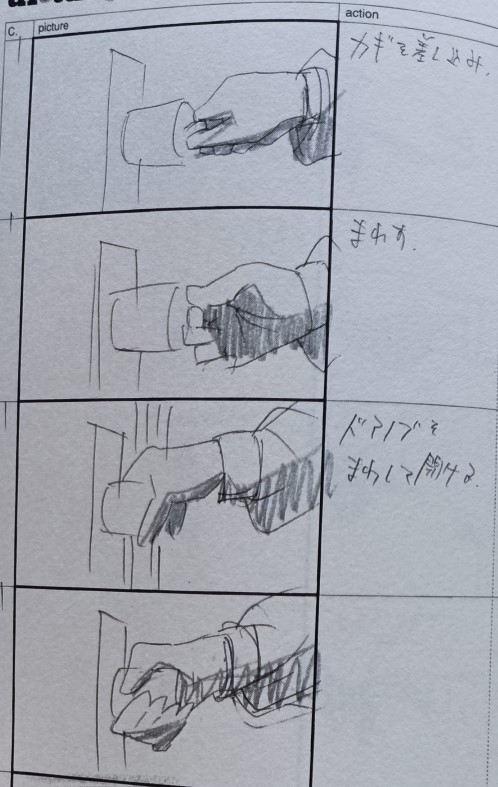 C.
picture
action
カギを差し込み.
まわす.
ドアノブを
まわして開ける.